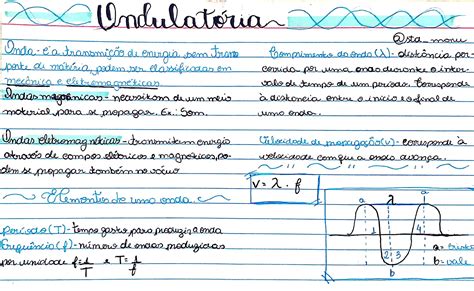 Ondulatória
@sta_manu
Onda - é a transmissão de energia, sem trans
porte de matéria, podem ser classificadas em
mecânica e eletromagnéticas.
Ondas mecânicas - necessitam de um meio
material para se propagar. Ex.: Som.
Ondas eletromagnéticas - transmitem energia
através de campos elétricos e magnéticos, po-
dem se propagar também no vácuo
Elementos de uma onda
Período (T) - tempo gasto para produzir a onda
Frequência (f) - número de ondas produzidas
por unidade f = 1/T e T = 1/f
Comprimento da onda (λ) - distância per-
corrida por uma onda durante o inter-
valo de tempo de um período. Corresponde
à distância entre o início e o final de
uma onda.
Velocidade de propagação (v) - corresponde à
velocidade com que a onda avança.
V = λ . f
a λ a
1 2 3 4
b
a = crista
b = vale